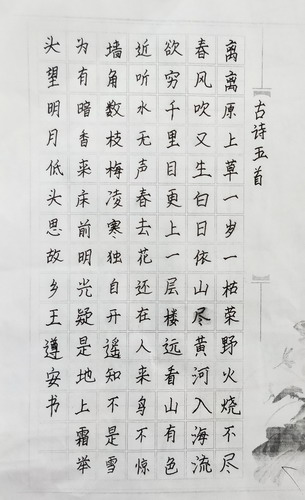 古诗五首
离离原上草一岁一枯荣野火烧不尽
春风吹又生白日依山尽黄河入海流
欲穷千里目更上一层楼远看山有色
近听水无声春去花还在人来鸟不惊
墙角数枝梅凌寒独自开遥知不是雪
为有暗香来床前明光疑是地上霜举
头望明月低头思故乡王遵安书